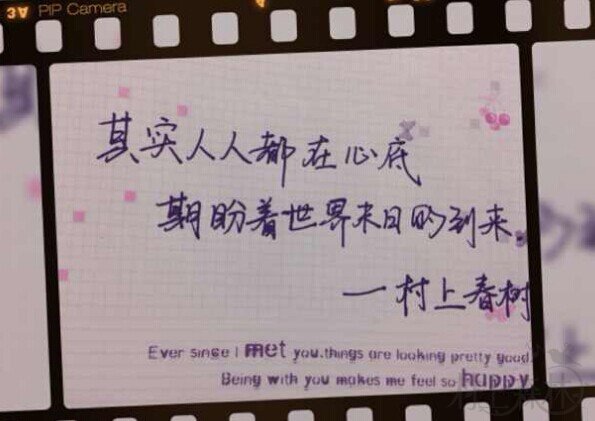 3A PIP Camera
其实人人都在心底
期盼着世界末日的到来.
—村上春树
Ever since I met you.things are looking pretty good
Being with you makes me feel so happy